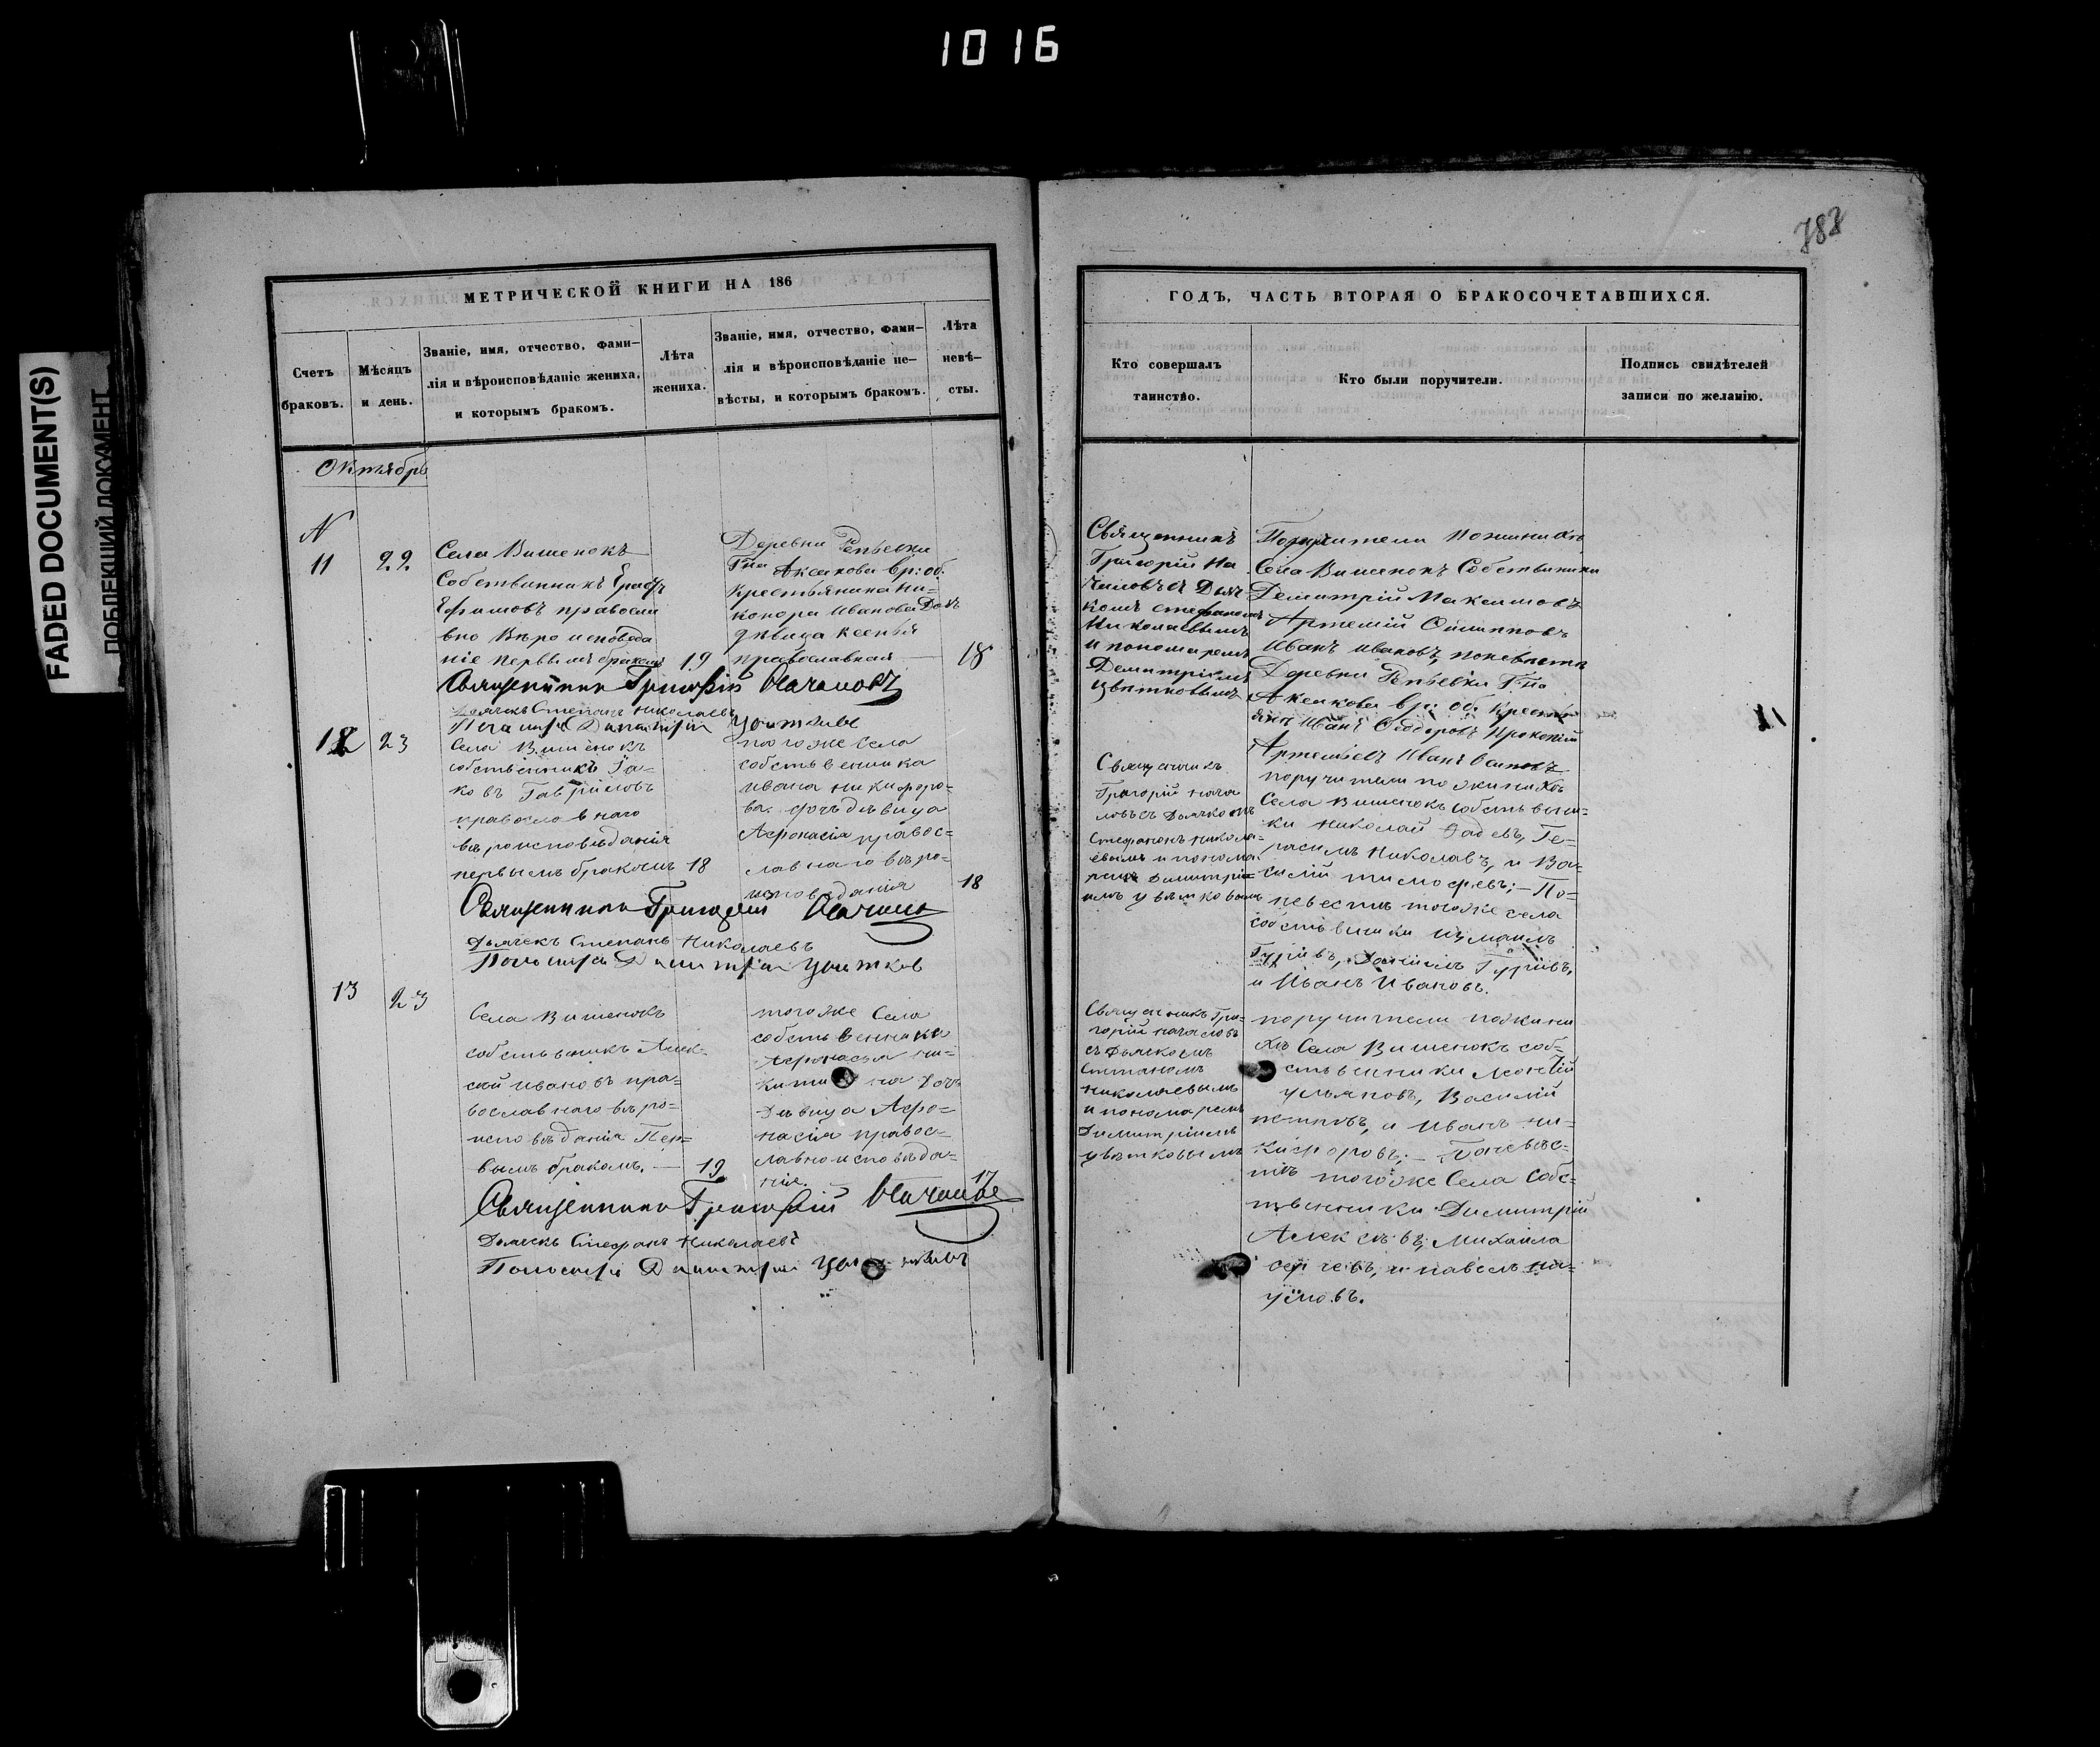 1016
FADED DOCUMENT(S)
ПОБЛЕКШИЙ ДОКУМЕНТ
МЕТРИЧЕСКОЙ КНИГИ НА 186
Счетъ
браковъ.
Мѣсяцъ
и день.
Званіе, имя, отчество, фами-
лія и вѣроисповѣданіе жениха,
и которымъ бракомъ.
Лѣта
жениха.
Званіе, имя, отчество, фами-
лія и вѣроисповѣданіе не-
вѣсты, и которымъ бракомъ.
Лѣта
невѣ-
сты.
Октября
N
11
22
Села Вишенокъ
Собственникъ
Ефимовъ правосла
вно Вѣро исповѣда
ніе первымъ бракомъ
19
Деревни Репьевки
Г-на Аксакова вр: об.
Крестьянина Ни-
конора Иванова Дочь
дѣвица Ксенья
православная
18
Священникъ Григорій Началовъ
Дьячекъ Степанъ Николаевъ
Пономарь Димитрій Цвѣтковъ
12
23
Села Вишенокъ
собственникъ Яа-
ковъ Гавриловъ
православнаго
вѣроисповѣданія
первымъ бракомъ
18
тогоже села
собственника
Ивана Никифоро-
ва дочь дѣвица
Афонасія правос-
лавнаго вѣро-
исповѣданія
18
Священникъ Григорій Началовъ
Дьячекъ Степанъ Николаевъ
Пономарь Димитрій Цвѣтков
13
23
Села Вишенокъ
собственникъ Алек-
сѣй Ивановъ пра-
вославнаго вѣро-
исповѣданія Пер-
вымъ бракомъ.
19
тогоже Села
собственника
Афонасья Ни-
китина Дочь
Дѣвица Афо-
насія правос-
лавно исповѣда-
ніе.
17
Священникъ Григорій Началовъ
Дьячекъ Стефанъ Николаевъ
Пономарь Димитрій Цвѣтковъ
782
ГОДЪ, ЧАСТЬ ВТОРАЯ О БРАКОСОЧЕТАВШИХСЯ.
Кто совершалъ
таинство.
Кто были поручители.
Подпись свидѣтелей
записи по желанію.
Священникъ
Григорій На
чаловъ съ Дьяч
комъ Стефаномъ
Николаевымъ
и пономаремъ
Димитріемъ
Цвѣтковымъ
Поручители по женихѣ
Села Вишенокъ Собственики
Демитрій Максимовъ
Артемій
Иванъ Ивановъ, по невѣстѣ
Деревни Репьевки Г-на
Аксакова вр: об. Крестья
янъ Иванъ Феодоровъ Прокопій
Артемьевъ Иванъ
Священникъ
Григорій Нача
ловъ съ Дьячкомъ
Стефаномъ Никола-
евымъ и понома
ремъ Димитріе-
мъ Цвѣтковымъ
поручители по женихѣ
Села Вишенокъ собственни-
ки Николай Фадевъ, Ге-
расимъ Николавъ, и Ва-
силій Тимофевъ; - По-
невестѣ тогоже села
собственники Измаилъ
Гурiевъ, Данiилъ Гурiевъ,
и Иванъ Ивановъ.
Священникъ Гри-
горій Началовъ
съ Дьячкомъ
Степаномъ
Николаевымъ
и пономаремъ
Димитріемъ
Цвѣтковымъ
поручители по жени
хѣ Села Вишенокъ соб-
ственники
Ульяновъ, Василій
и Иванъ Ни-
кифоровъ; - По невѣс-
тѣ тогоже Села Собс-
твенники Димитрій
Алексѣвъ, Михайла
и павелъ На-
умовъ.